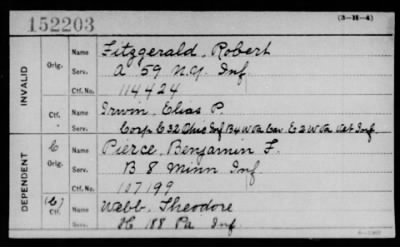 152203
(3-H-4)
INVALID
Orig.
Name Fitzgerald, Robert
Serv. A 59 N.Y. Inf
Ctf. No. 114424
Ctf.
Name Irwin, Elias P.
Serv. Corp. C 32 Ohio Inf B 4 W Va Cav. E 2 W Va Vet Inf.
DEPENDENT
C
Orig.
Name Pierce, Benjamin F.
Serv. B 8 Minn Inf
Ctf. No. 107199
(C)
Ctf.
Name Webb, Theodore
Serv. H 188 Pa Inf.